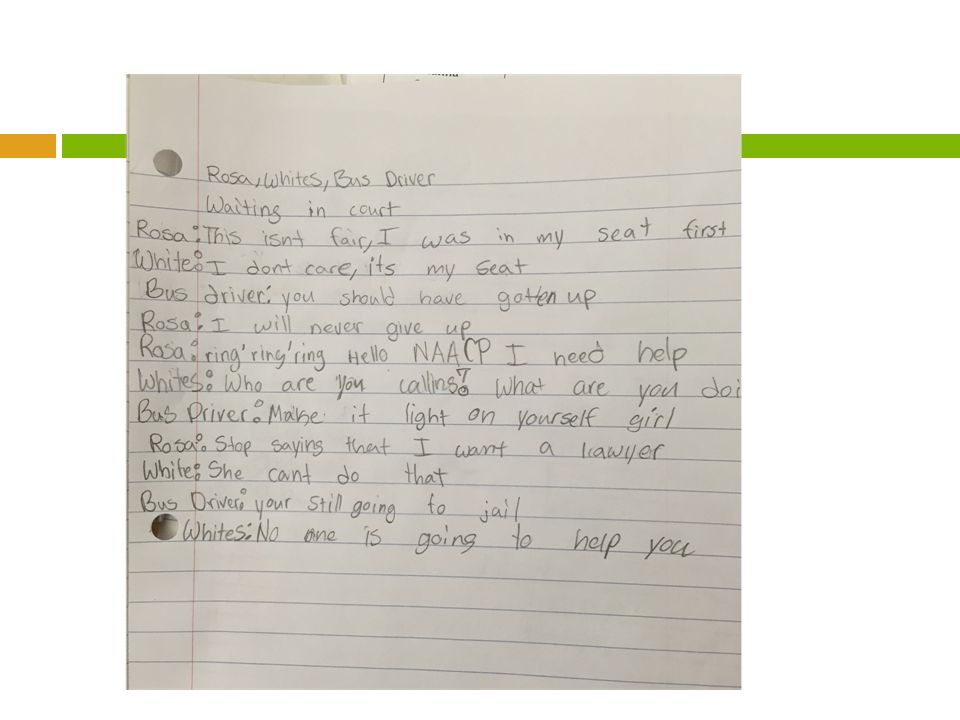 Rosa, Whites, Bus Driver
Waiting in court
Rosa: This isnt fair, I was in my seat first
White: I dont care, its my seat
Bus driver: you should have gotten up
Rosa: I will never give up
Rosa: ring' ring' ring Hello NAACP I need help
Whites: Who are you calling? What are you doi
Bus Driver: Make it light on yourself girl
Rosa: Stop saying that I want a lawyer
White: She cant do that
Bus Driver: your still going to jail
Whites: No one is going to help you